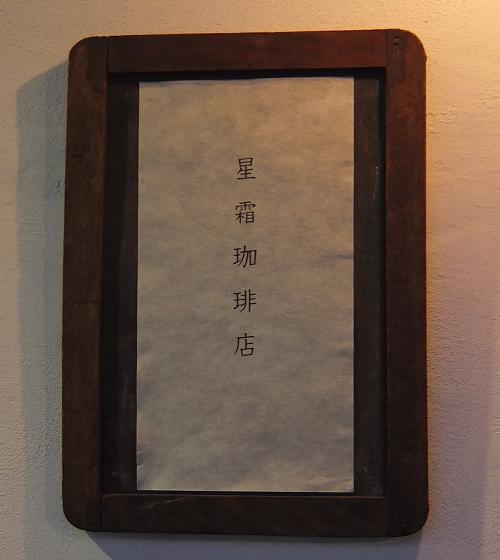 星霜珈琲店